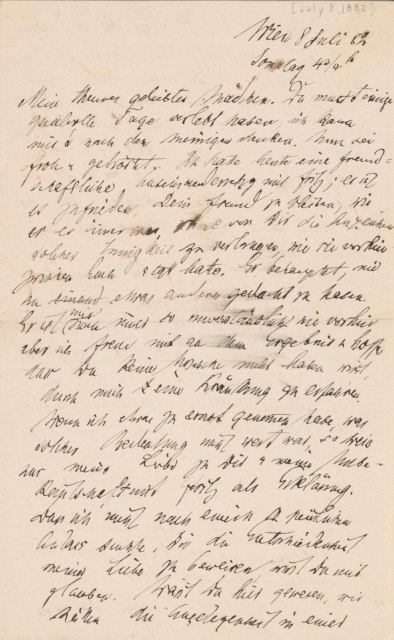 [July 8, 1882]
Wien 8 Juli 82
Sonntag
Mein theures geliebtes Mädchen. Du musst einige
qualvolle Tage verlebt haben, ich kann
mir's nach den meinigen denken. Nun sei
froh u getröstet. Ich hatte heute eine freund-
schaftliche mit Fritz; es ist
es zufrieden, Dein Freund zu bleiben, wie
er es immer war, ohne von Dir die Anzeichen
solcher Innigkeit zu verlangen, wie sie vorhin
zwischen Euch hatte. Er behauptet, nie
etwas anderes gedacht zu haben.
Er ist mir nun so unverständlich wie vorhin
aber ich freue mich an dem Ergebnis u hoffe
daß Du keine mehr haben wirst,
durch mich keine Kränkung zu erfahren.
Wenn ich etwas zu ernst genommen habe, was
solcher Bedeutung nicht wert war, so
nur meine Liebe zu Dir u meine Unbe-
kanntschaft mit Fritz als Erklärung.
Dass ich nicht nach einem
Anlass suchte, Dir die
meiner Liebe zu beweisen, wirst Du mir
glauben. Wärst Du hier gewesen, wir
hätten die Angelegenheit in einer